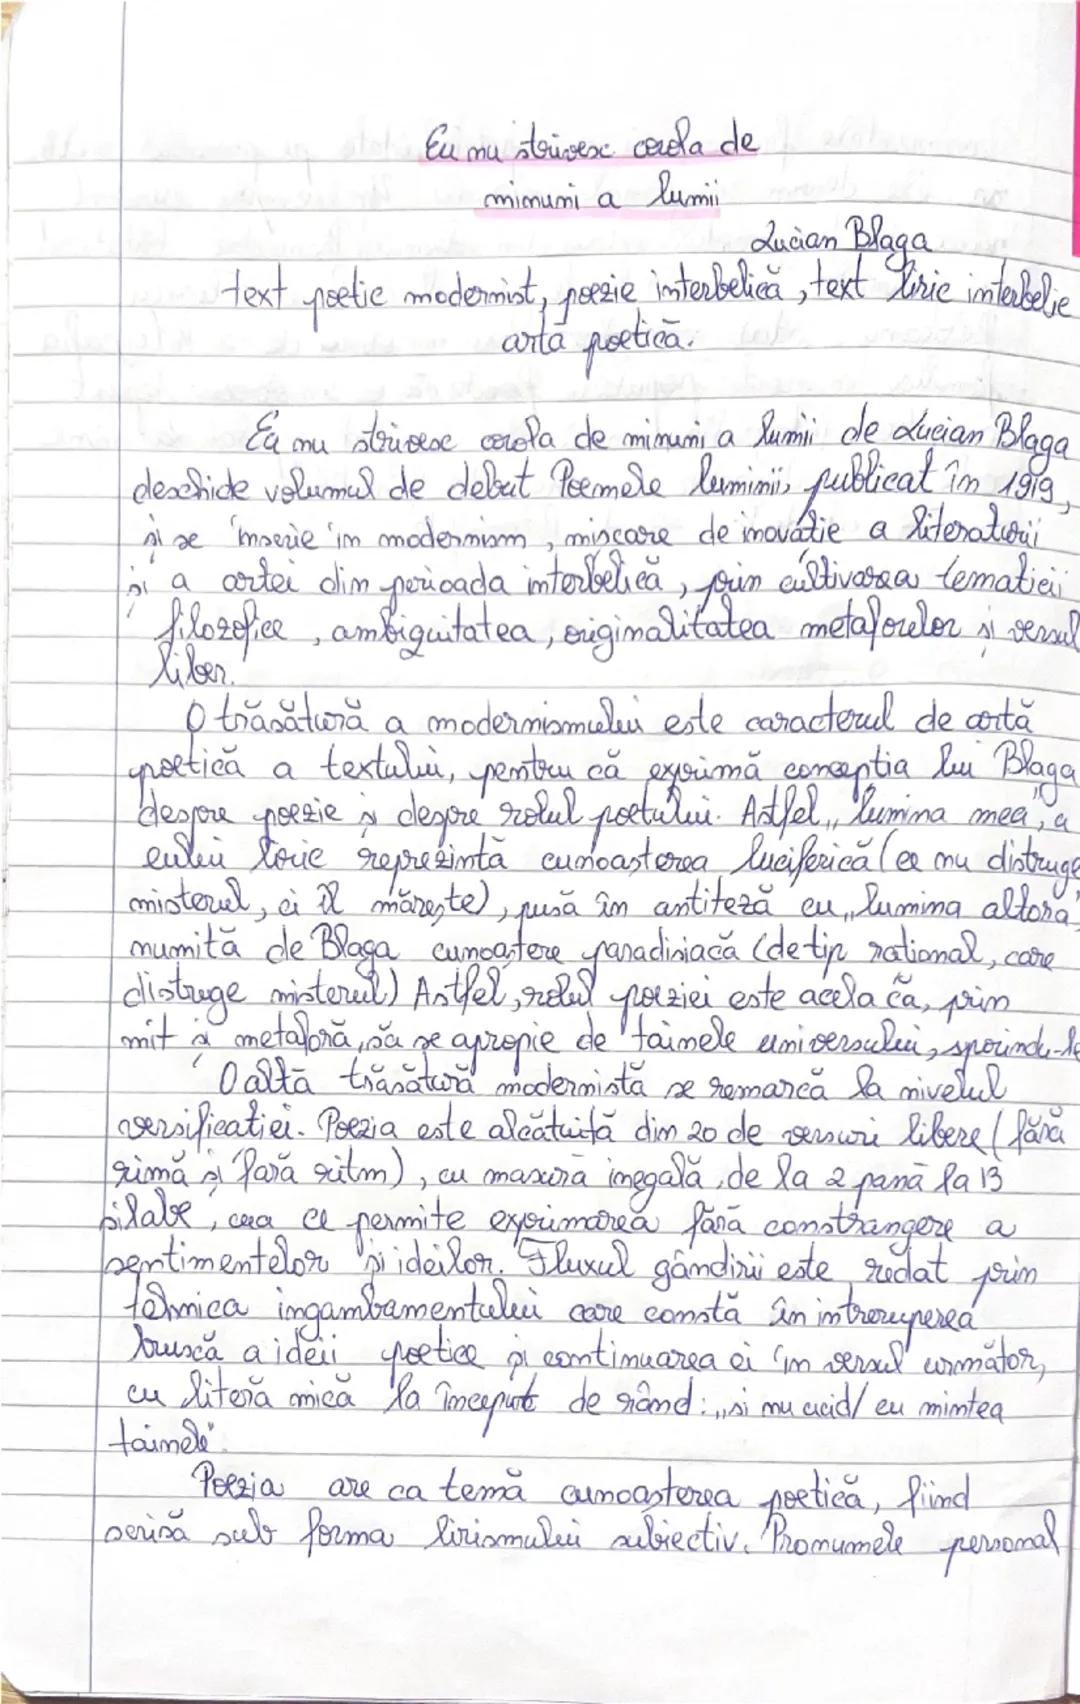 Eu nu strivesc corola de
minuni a lumii
Lucian Blaga
text poetic modernist, poezie interbelică, text liric interbelic
artă poetică.
Eu nu strivesc corola de minuni a lumii de Lucian Blaga
deschide volumul de debut Poemele luminii, publicat în 1919,
și se înscrie în modernism, mișcare de inovație a literaturii
și a artei din perioada interbelică, prin cultivarea tematicii
filozofice, ambiguitatea, originalitatea metaforelor și versul
liber.
O trăsătură a modernismului este caracterul de artă
poetică a textului, pentru că exprimă concepția lui Blaga
despre poezie și despre rolul poetului. Astfel, „lumina mea", a
eului liric reprezintă cunoașterea luciferică (ce nu distruge
misterul, ci îl mărește), pusă în antiteză cu „lumina altora"
numită de Blaga cunoaștere paradisiacă (de tip rațional, care
distruge misterul) Astfel, rolul poeziei este acela ca, prin
mit și metaforă, să se apropie de tainele universului, sporindu-le
O altă trăsătură modernistă se remarcă la nivelul
versificației. Poezia este alcătuită din 20 de versuri libere (fără
rimă și fără ritm), cu masură inegală, de la 2 pană la 13
silabe, ceea ce permite exprimarea fără constrangere a
sentimentelor și ideilor. Fluxul gândirii este redat prin
tehnica ingambamentului care constă în intreruperea
bruscă a ideii poetice și continuarea ei în versul următor,
cu literă mică la început de rând: „și nu ucid/ cu mintea
tainele".
Poezia are ca temă cunoașterea poetică, fiind
scrisă sub forma lirismului subiectiv. Pronumele personal